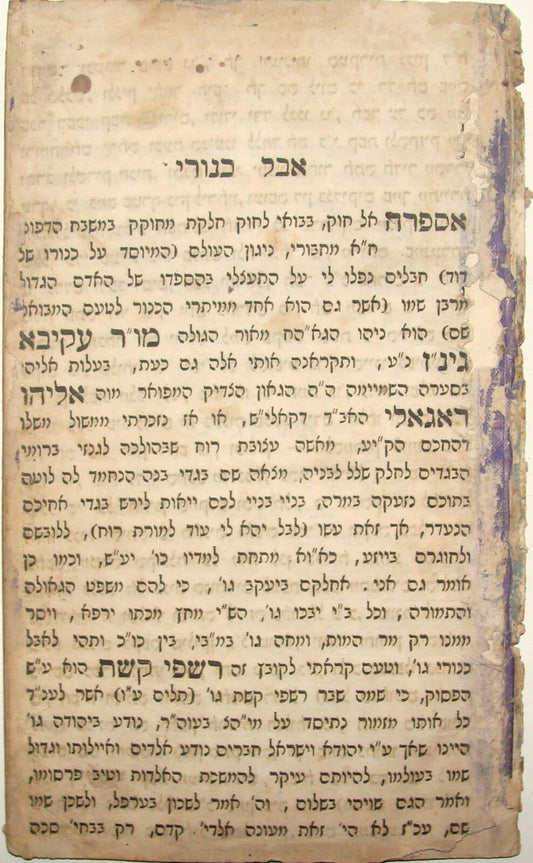 אבל כנורי
אספרה אל חוק, בבואי לחוק חלקת מחוקק במשבח הדפוס
ח"א מחבורי, ניגון העולם (המיוסד על כנורו של
דוד) חבלים נפלו לי על התעצלי בהספדו של האדם הגדול
מרבן שמו (אשר גם הוא אחד ממיתרי הכנור לטעם המבואר
שם) הוא ניהו הגא"הח מאור הגולה מו"ר עקיבא
גינ"ז נ"ע, ותקראנה אותי אלה גם כעת, בעלות אליהו
בסערה השמיימה ה"ה הגאון הצדיק המפואר מוה אליהו
ראגאלי האב"ד דקאלי"ש, או אז נזכרתי ממשול משלו
דהחכם הק"יע, מאשה עצובת רוח שבהולכה לגנזי ברומי
הבגדים לחלק שלל לבניה, מצאה שם בגדי בנה הנחמד לה לוטה
בתוכם נזעקה במרה, בניי בניי לכם ייאות לירש בגדי אחיכם
הנעדר, אך זאת עשו (לבל יהא לי עוד למורת רוח), ללובשם
ולחוגרם בייזע, כא"וא מתחת למדיו כו' יע"ש, וכמו כן
אומר גם אני. אחלקם ביעקב גו', כי להם משפט הגאולה
והתמורה, וכל ב"י יבכו גו', הש"י מחץ מכתו ירפא, ויסר
ממנו רק מר המות, ומחה גו' במ"בי, בין כו"כ ותהי לאבל
כנורי גו', וטעם קראתי לקובץ זה רשפי קשת הוא ע"ש
הפסוק, כי שמה שבר רשפי קשת גו' (תלים ע"ו) אשר לענ"ד
כל אותו מזמור נתיסד על מי"הצ בעוה"ר, נודע ביהודה גו'
היינו שאך ע"י יהודא וישראל חברים נודע אלדים ואיילותו וגדול
שמו בעולמו, להיותם עיקר להמשכת האלדות וטיב פרסומו,
ואמר הגם שויהי בשלום, וה' אמר לשכון בערפל, ולשכן שמו
שם, עכ"ז לא הי' זאת מעונה אלדי' קדם, רק בבחי' סכה